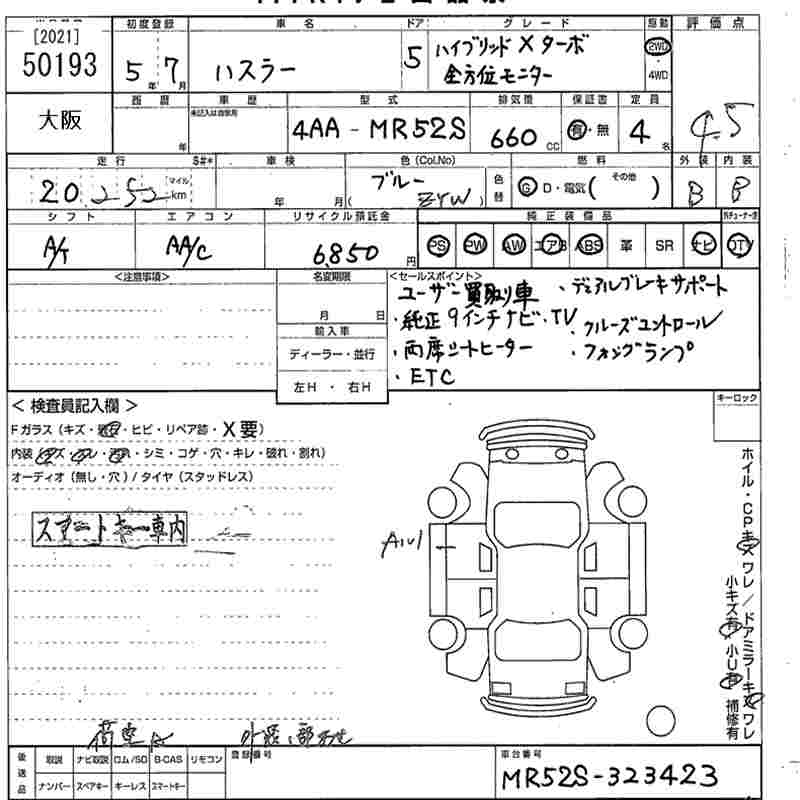 [2021]
50193
初度登録
車名
ドア
グレード
駆動
評価点
5年7月
ハスラー
5
ハイブリッド X ターボ
全方位モニター
2WD
4WD
大阪
西暦
車歴
型式
排気量
保証書
定員
年
4AA-MR52S
660 CC
有・無
4名
4.5
走行
S#*
車検
色(Col.No)
色替
燃料
外装
内装
20252 マイル km
年 月
ブルー
( ZYW )
G D・電気( その他 )
B
B
シフト
エアコン
リサイクル預託金
純正装備品
A/T
AA/C
6,850 円
PS PW AW エアB ABS 革 SR ナビ TV
<注意事項>
名変期限
月 日
輸入車
ディーラー・並行
左H・右H
<セールスポイント>
ユーザー買取り車
・デュアルブレーキサポート
・純正9インチナビ・TV
・クルーズコントロール
・両席シートヒーター
・フォグランプ
・ETC
<検査員記入欄>
Fガラス(キズ・・ヒビ・リペア跡・X要)
内装(キズ・・・シミ・コゲ・穴・キレ・破れ・割れ)
オーディオ(無し・穴)/タイヤ(スタッドレス)
スマートキー車内
キーロック
A1U1
ホイル・CPキズワレ/ドアミラーキズワレ
小キズ有 小U有 補修有
後送品
取説 ナビ取説 ロム/SD B-CAS リモコン
ナンバー スペアキー キーレス スマートキー
登録番号
車台番号
MR52S-323423